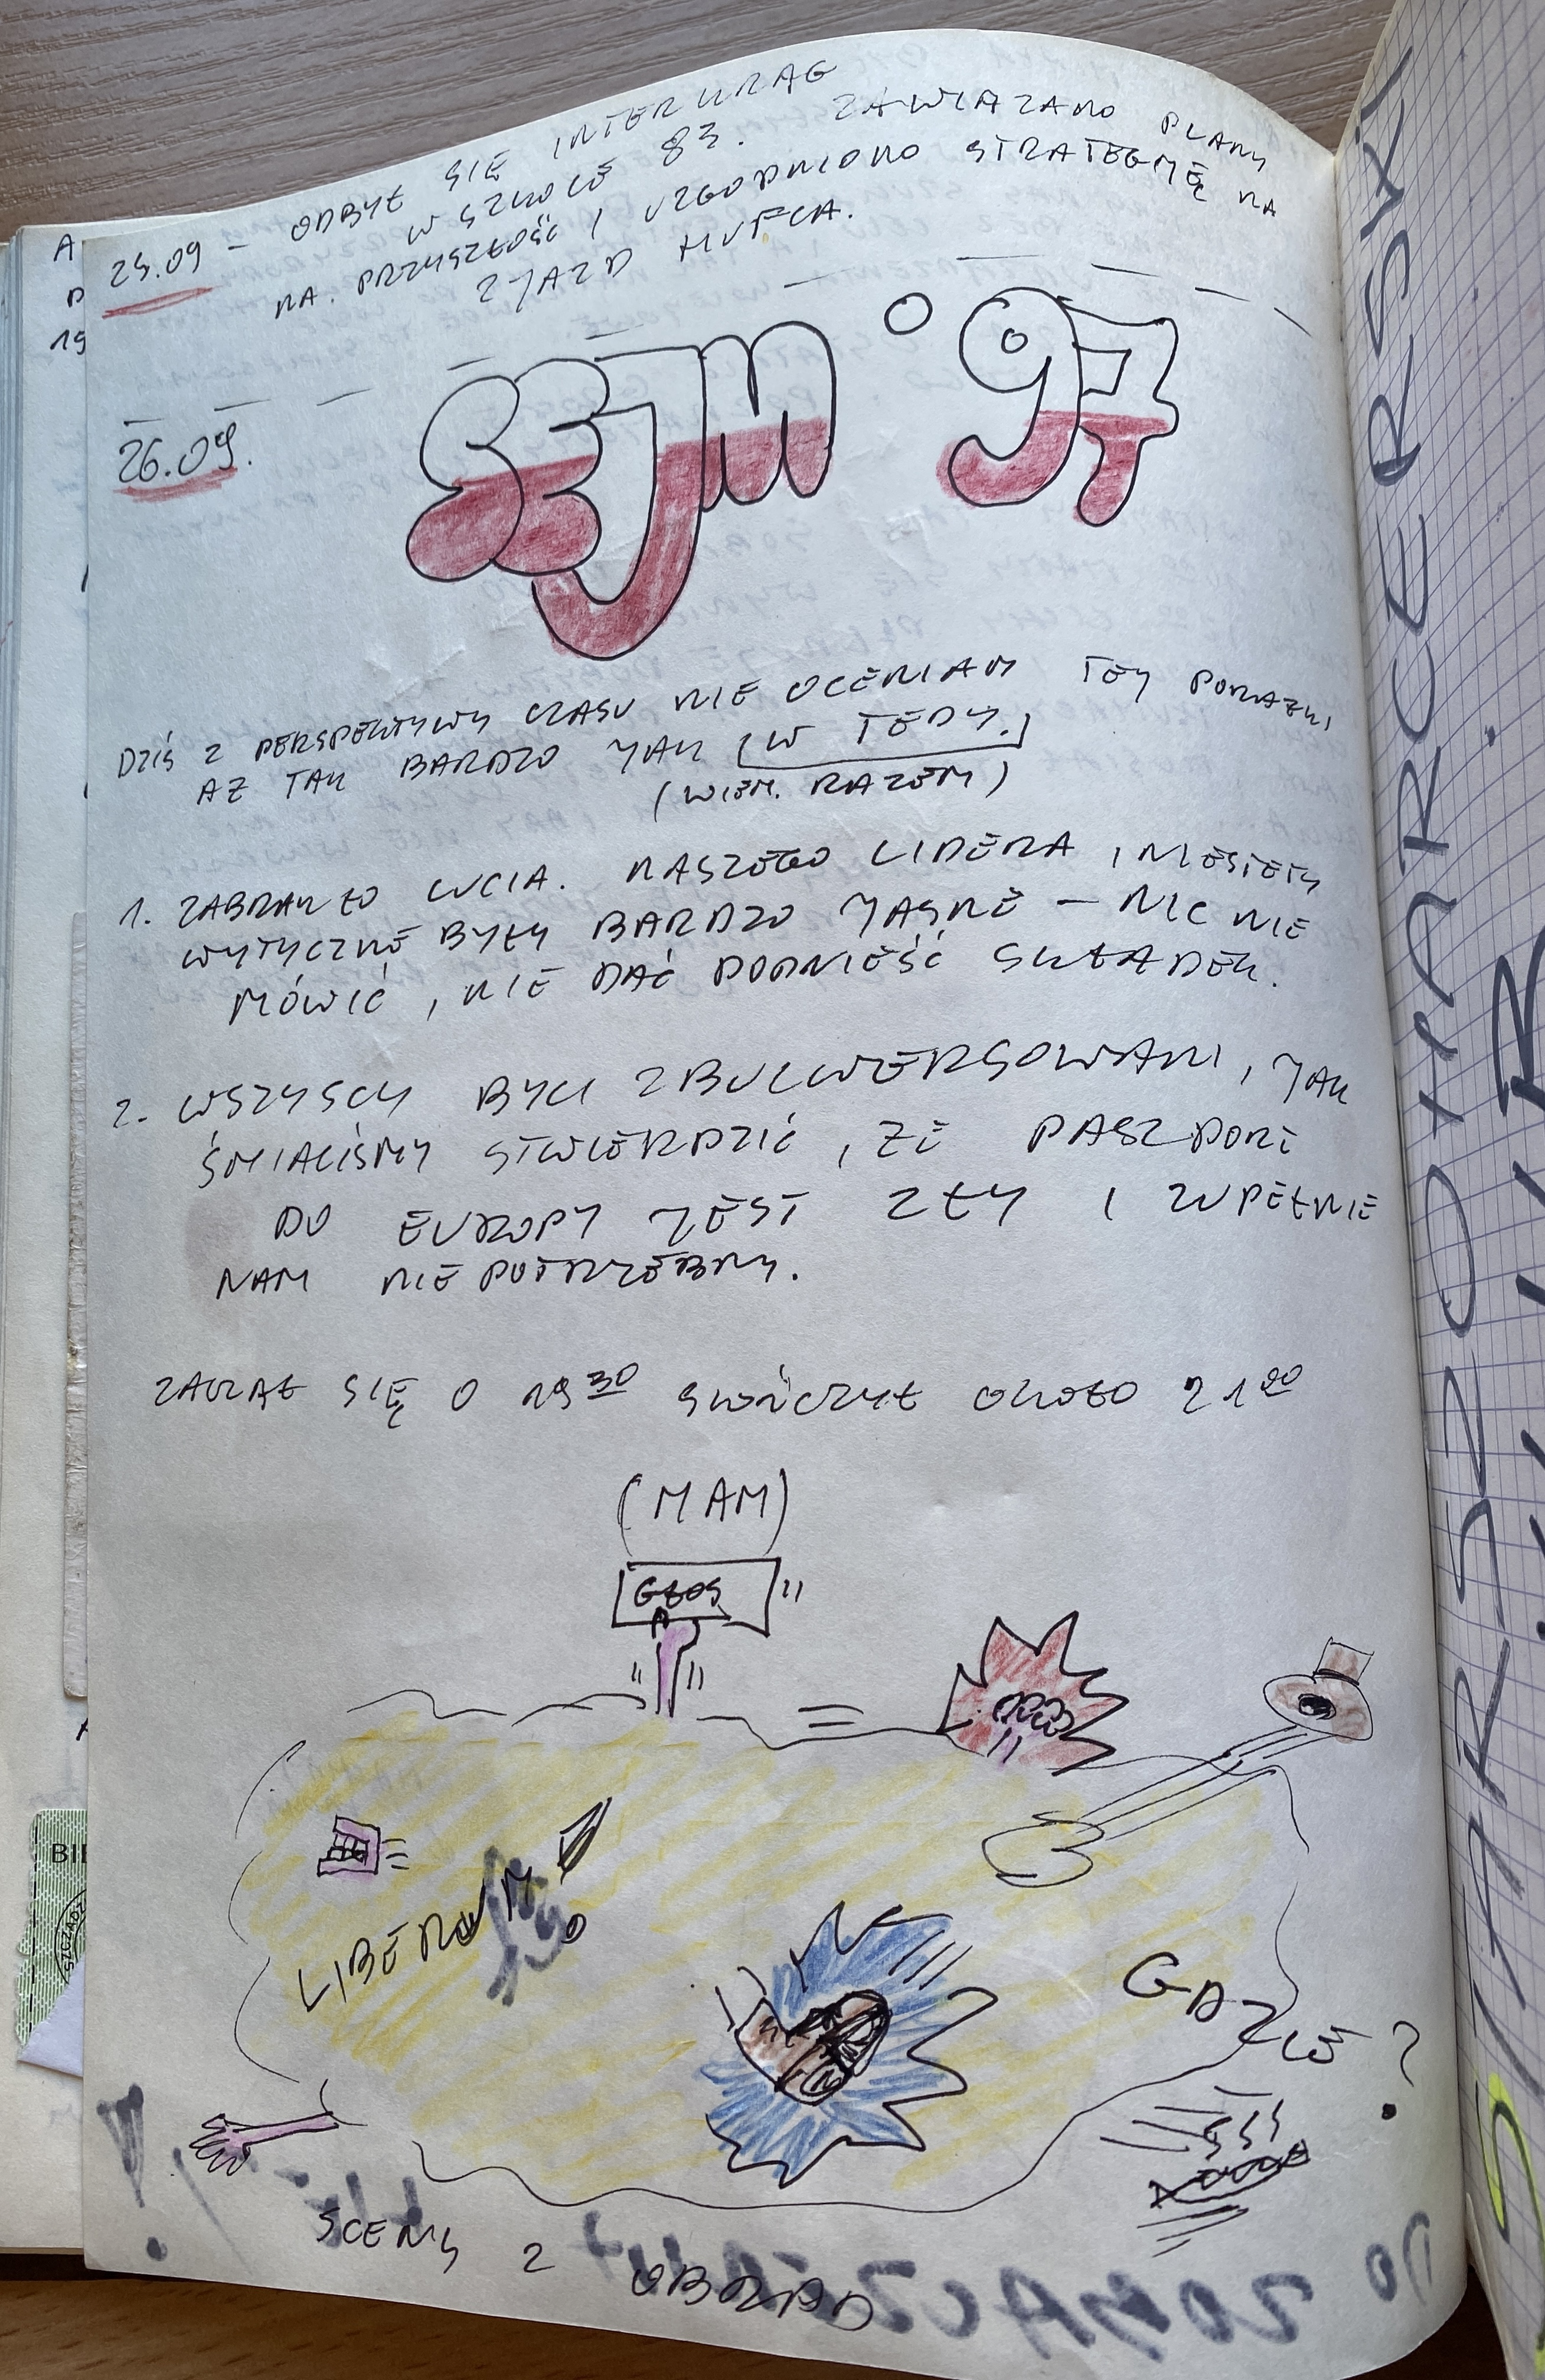 25.09 – ODBYŁ SIĘ INTERKRĄG
W SZKOLE 83. ZAWIĄZANO PLANY
NA. PRZYSZŁOŚĆ I UZGODNIONO STRATEGIĘ NA
ZJAZD HUFCA.
26.09.
SEJM '97
DZIŚ Z PERSPEKTYWY CZASU NIE OCENIAM TEJ PORAŻKI
AŻ TAK BARDZO JAK W TEDY.
(WIEM. RAZEM)
1. ZABRAKŁO LUCIA. NASZEGO LIDERA, NIESTETY
WYTYCZNE BYŁY BARDZO JASNE – NIC NIE
MÓWIĆ, NIE DAĆ PODNIEŚĆ SKŁADEK.
2. WSZYSCY BYLI ZBULWERSOWANI, JAK
ŚMIALIŚMY STWIERDZIĆ, ŻE PASZPORT
DO EUROPY JEST ZŁY I ZUPEŁNIE
NAM NIE POTRZEBNY.
ZACZĄŁ SIĘ O 19 30 SKOŃCZYŁ OKOŁO 21 00
(MAM)
GŁOS
LIBERUM
GDZIE?
SCENY Z OBRAD
A
19
BI
STARSZOHARCERSKI
DO ZOBACZENIA